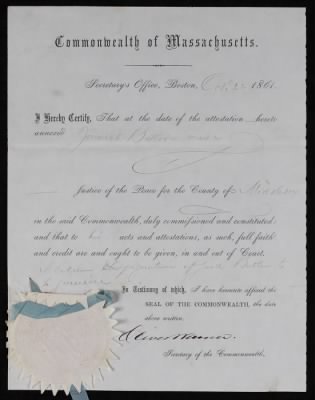 Commonwealth of Massachusetts.
Secretary's Office, Boston, Oct. 1861.
I Hereby Certify, That at the date of the attestation hereto
annexed
was
Justice of the Peace for the County of
in the said Commonwealth, duly commissioned and constituted:
and that to his acts and attestations, as such, full faith
and credit are and ought to be given, in and out of Court.
In Testimony of which, I have hereunto affixed the
SEAL OF THE COMMONWEALTH, the date
above written.
Oliver Warner
Secretary of the Commonwealth.